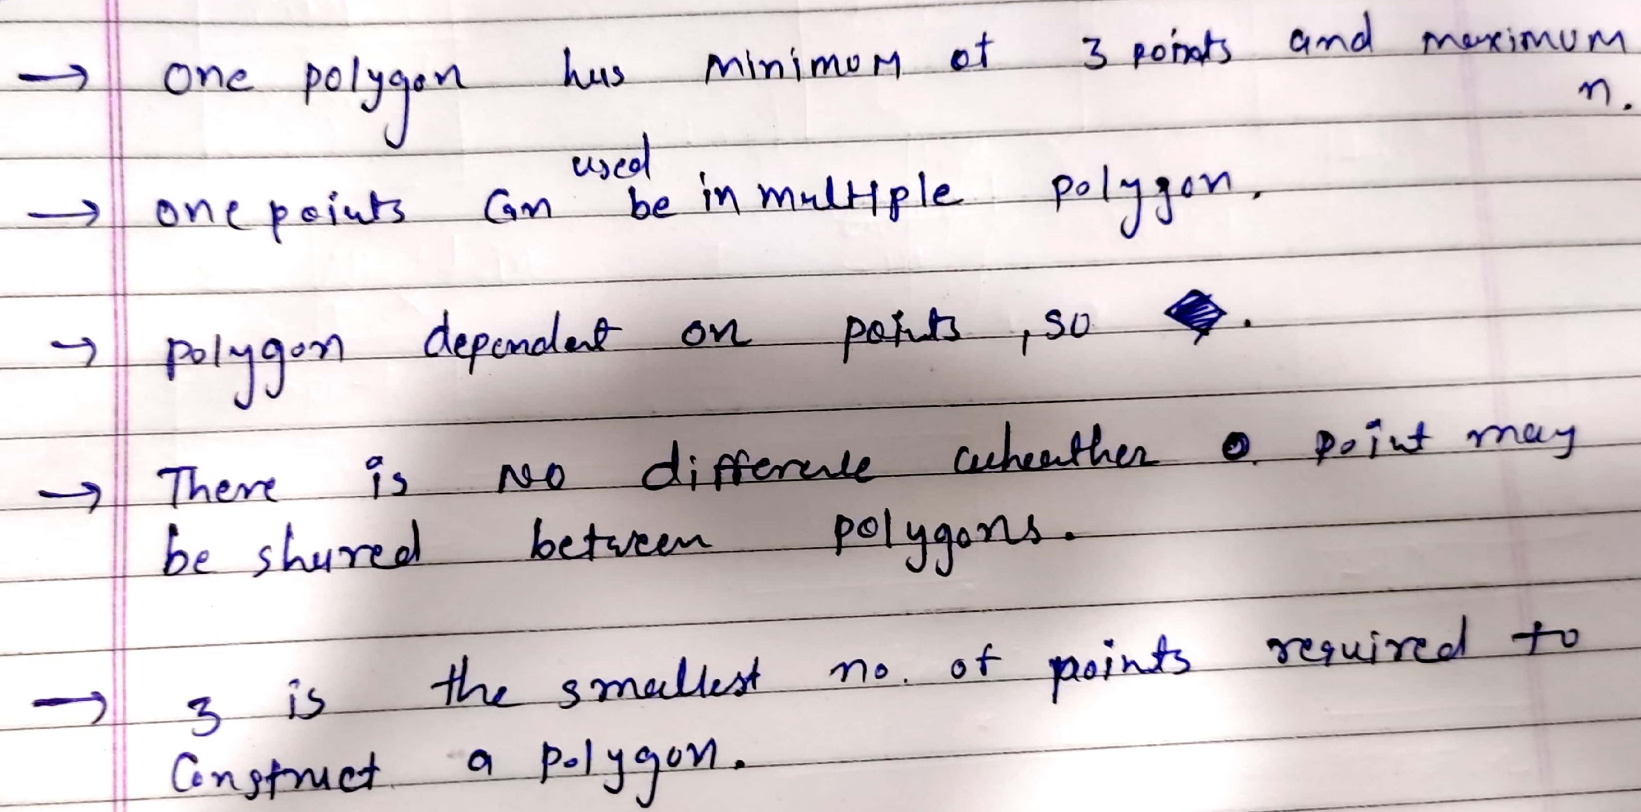 → one polygon has minimum of 3 points and maximum
n.
→ one points can be used in multiple polygon.
→ polygon dependent on points, so .
→ There is no difference wheather point may
be shared between polygons.
→ 3 is the smallest no. of points required to
Construct a polygon.